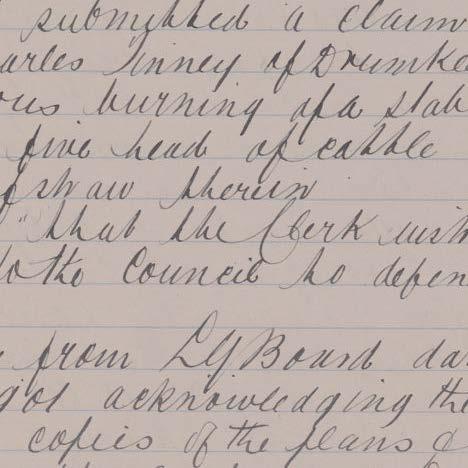 submitted a claim
arles Tinney of Drumke
ous burning of a stab
five head of cattle
of straw therein
" that the Clerk inst
to the Council to defen
from LG Board da
901 acknowledging the
copies of the plans &